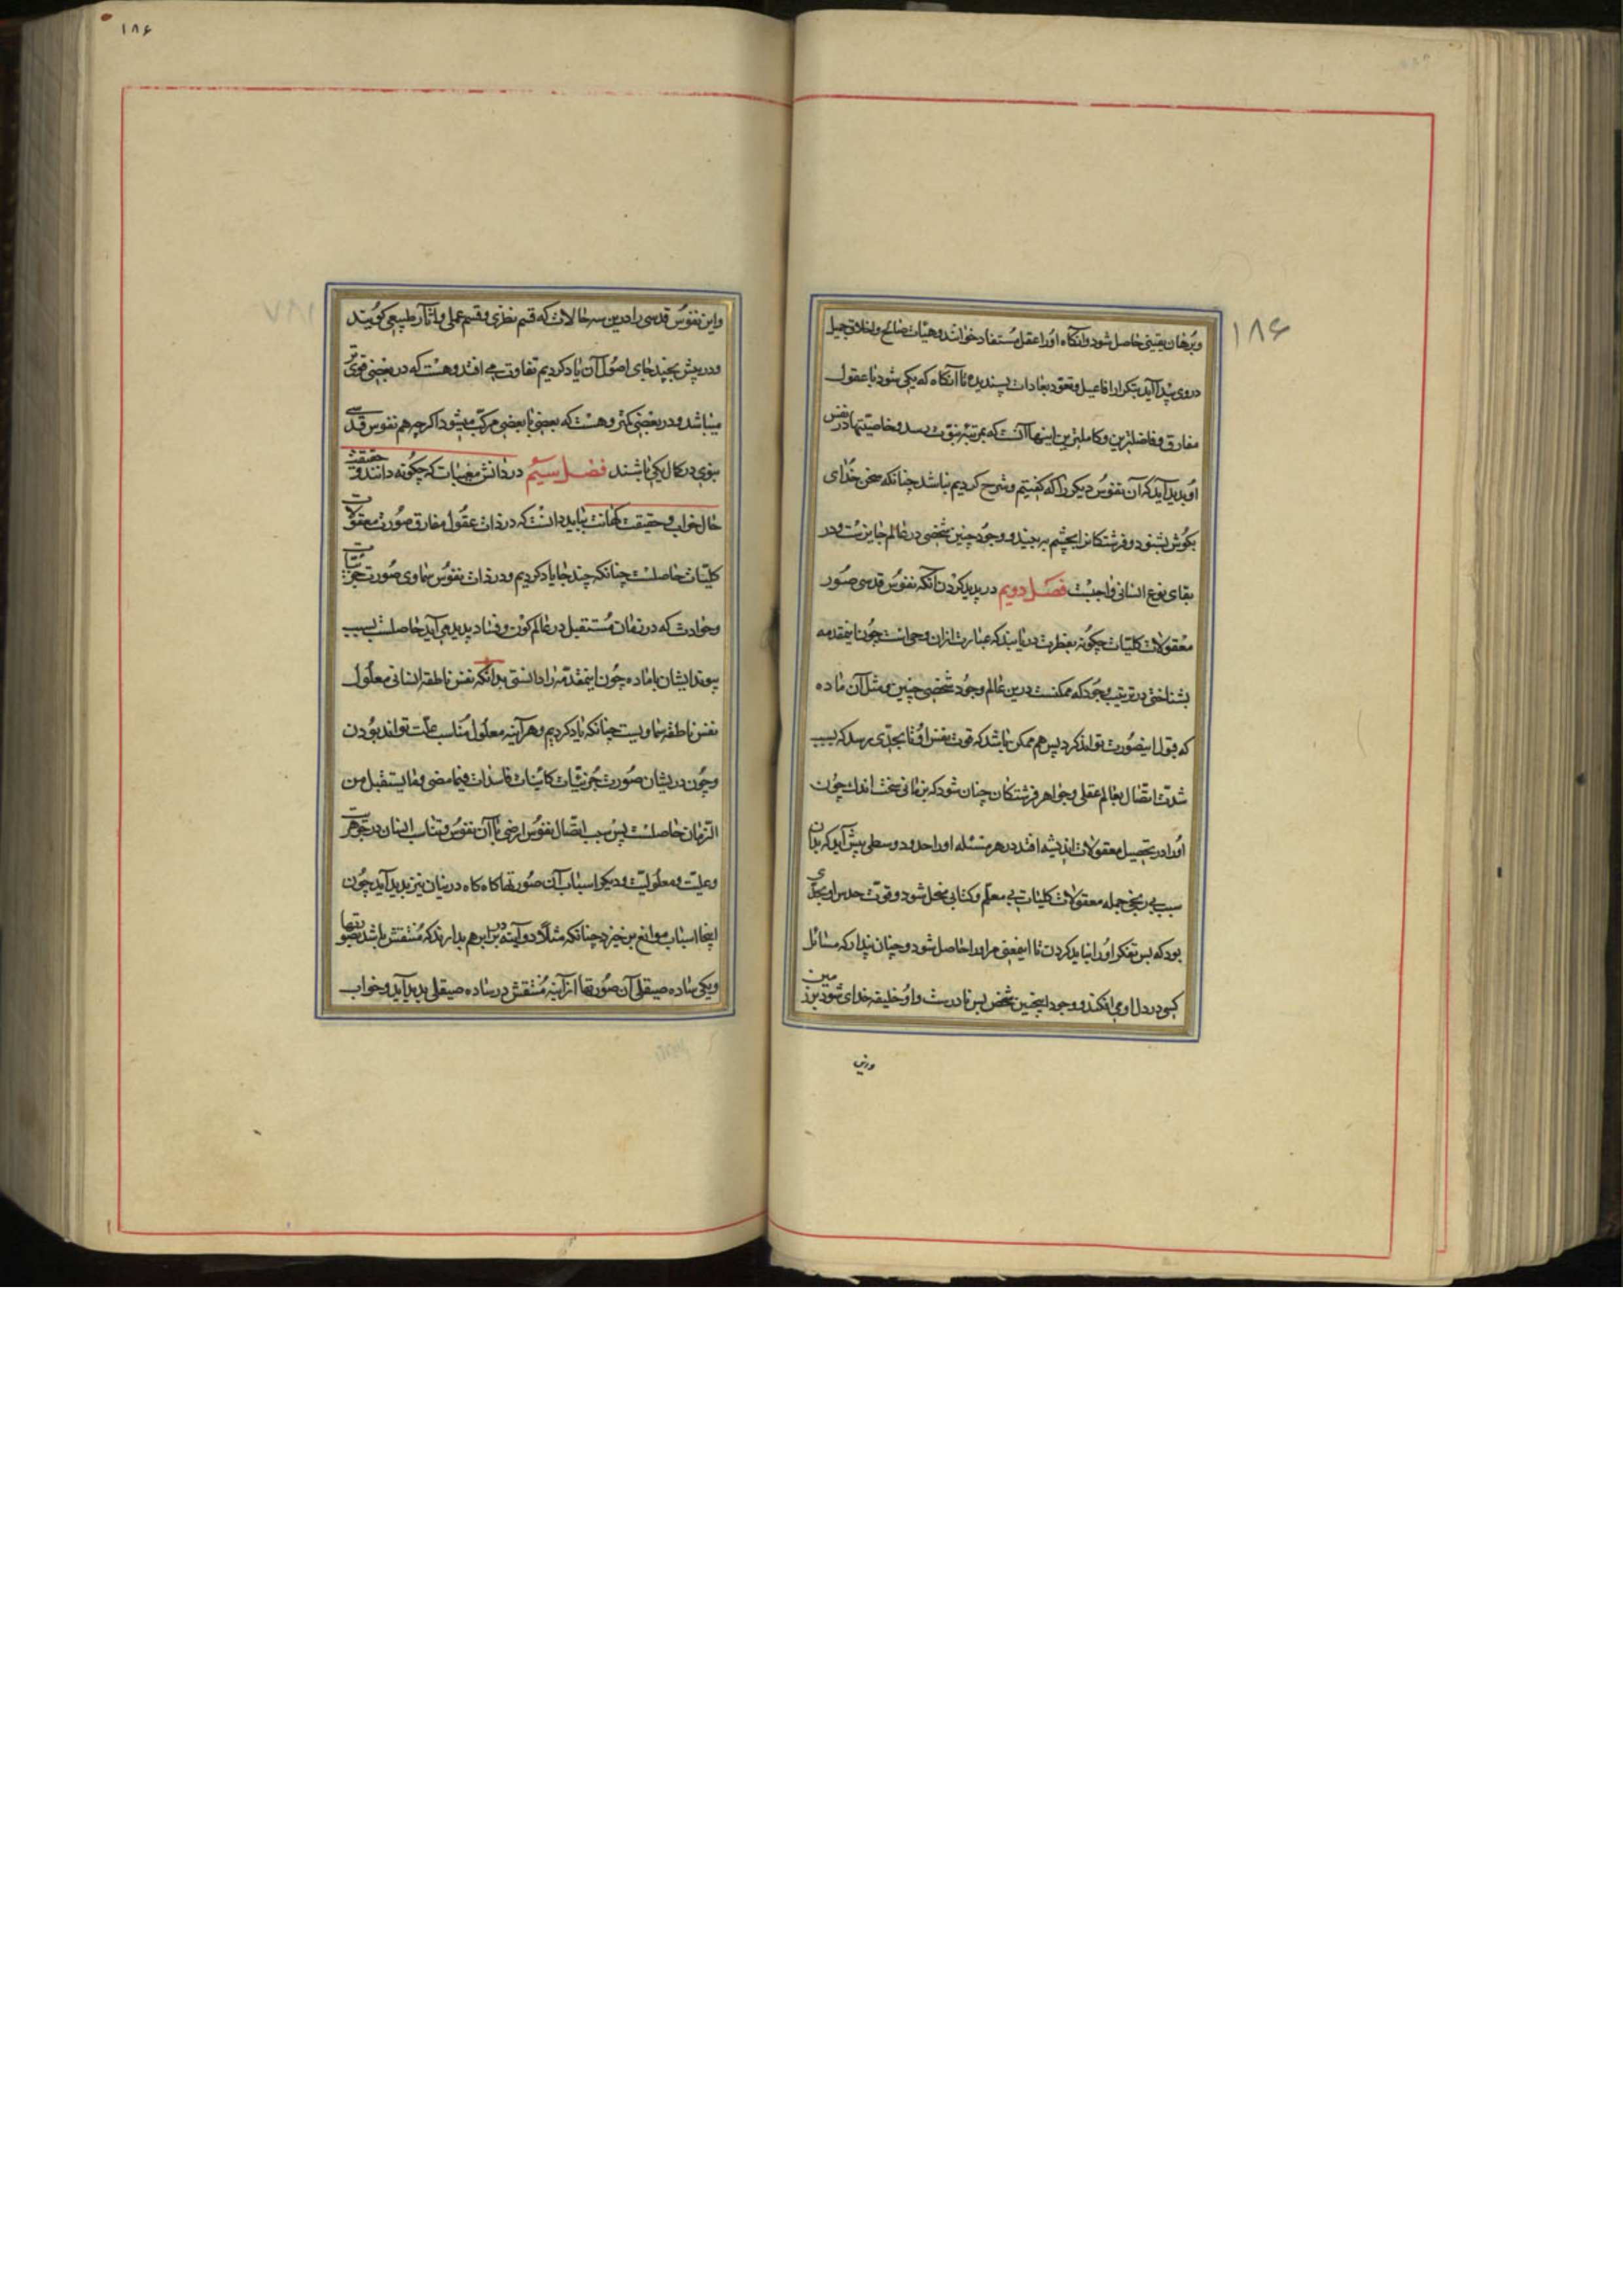 ۱۸۶
وبرهان یقینی حاصل شود وآنگاه اورا عقل مستفاد خوانند وهیات صالح واخلاق جمیل
در وی پیدا آید بتکرار افاعیل وتعود بعادات پسندیده تا آنگاه که یکی شود با عقول
مفارق وفاضلترین وکاملترین اینها آنست که بمرتبه نبوت رسد وخاصیتها در نفس
او پدید آید که آن نفوس دیگر را که گفتیم وشرح کردیم نباشد چنانکه سخن خدای
بگوش بشنود وفرشتگانرا بچشم ببیند ووجود چنین شخصی در عالم جایزست ودر
بقای نوع انسانی واجبست فصل دویم در پدید کردن آنکه نفوس قدسی صور
معقولات کلیات چگونه بفطرت دریابند که عبارت ازان وحی است چون اینمقدمه
بشناختی در ترتیب وجود که ممکنست درین عالم وجود شخصی چنین ومثل آن ماده
که قبول اینصورت تواند کرد پس هم ممکن باشد که قوت نفس او تا بحدی برسد که بسبب
شدت اتصال بعالم عقلی وجواهر فرشتگان چنان شود که بزمانی سخت اندک چون
اورا در تحصیل معقولات اندیشه افتد در هر مسئله اورا حدود وسطی پیش آید که بدان
سبب بی رنجی جمله معقولات کلیات بی معلم وکتابی منحل شود وقوت حدس او بحدی
بود که بس تفکر اورا نباید کردن تا اینمعنی مر اورا حاصل شود وچنان پندارد که مسائل
کسی در دل او می افکند ووجود اینچنین شخص بس نادرست واو خلیفه خدای شود بر زمین
واین
۱۸۶
۱۸۷
واین نفوس قدسی را درین سه حالات که قسم نظری وقسم عملی وآثار طبیعی گویند
ودر پیش بچند جای اصول آن یاد کردیم تفاوت می افتد وهست که در بعضی قوی تر
میباشد ودر بعضی کمتر وهست که بعضی با بعضی مرکب میشود اگرچه هم نفوس قدسی
نبوی در کمال یکی باشند فصل سیم در دانش مغیبات که چگونه دانند وحقیقت
حال خواب وحقیقت کهانت بباید دانست که در ذات عقول مفارق صورت معقولات
کلیات حاصلست چنانکه چند جا یاد کردیم ودر ذات نفوس سماوی صورت جزئیات
وحوادث که در زمان مستقبل در عالم کون وفساد پدید می آید حاصلست بسبب
پیوند ایشان با ماده چون اینمقدمه را دانستی بدانکه نفس ناطقه انسانی معلول
نفس ناطقه سماویست چنانکه یاد کردیم وهر آینه معلول مناسب علت تواند بودن
وچون در یشان صورت جزئیات کاینات فاسدات فیما مضی وما یستقبل من
الزمان حاصلست پس بسبب اتصال نفوس ارضی با آن نفوس وتناسب ایشان در جوهریت
وعلیت ومعلولیت ودیگر اسباب آن صورتها گاه گاه درینان نیز پدید آید چون
اینجا اسباب موانع برخیزد چنانکه مثلا دو آینه در برابر هم بدارند که منتقش باشد بصورتها
ویکی ساده صیقلی آن صورتها از آینه منتقش در ساده صیقلی پدید آید وخواب